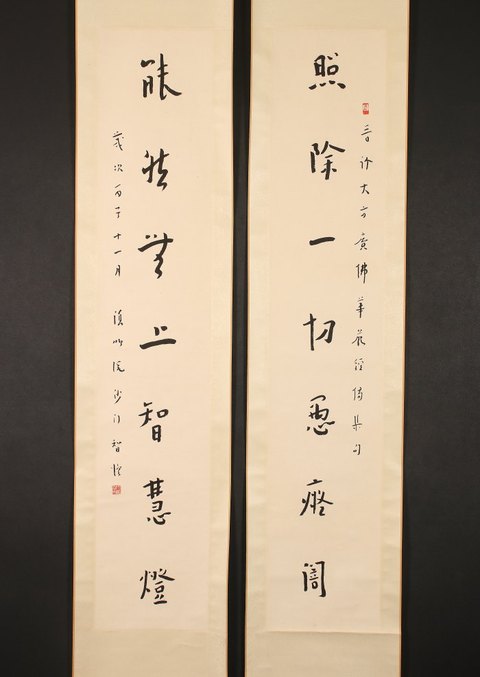 晉譯大方廣佛華嚴經偈集句
照除一切愚癡闇
能然無上智慧燈
歲次丙子十一月 院沙門智